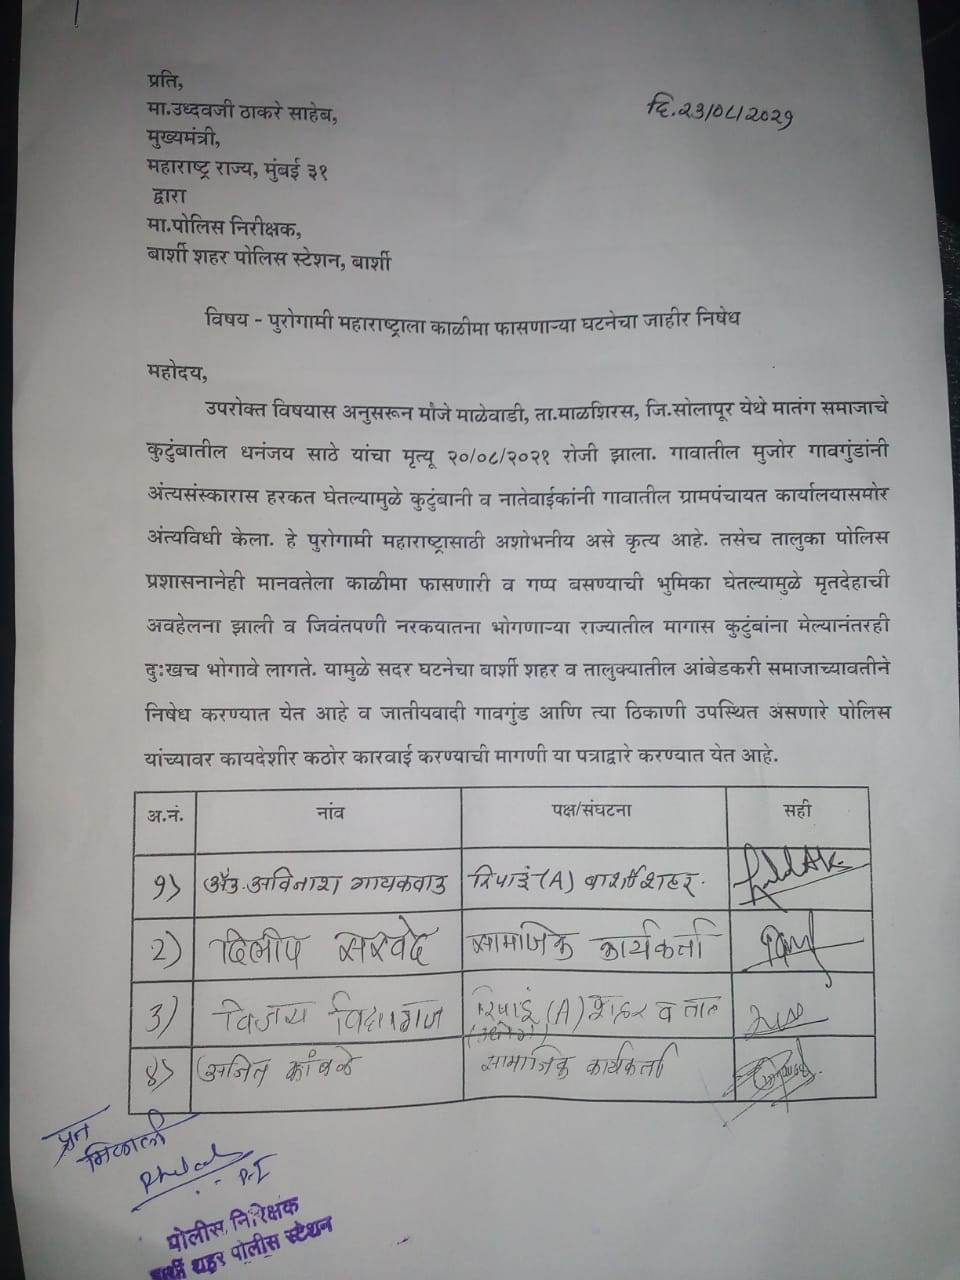 प्रति,
दि.२३/०८/२०२१
मा.उध्दवजी ठाकरे साहेब,
मुख्यमंत्री,
महाराष्ट्र राज्य, मुंबई ३१
द्वारा
मा.पोलिस निरीक्षक,
बार्शी शहर पोलिस स्टेशन, बार्शी
विषय - पुरोगामी महाराष्ट्राला काळीमा फासणाऱ्या घटनेचा जाहीर निषेध
महोदय,
उपरोक्त विषयास अनुसरून मौजे माळेवाडी, ता.माळशिरस, जि.सोलापूर येथे मातंग समाजाचे
कुटुंबातील धनंजय साठे यांचा मृत्यू २०/०८/२०२१ रोजी झाला. गावातील मुजोर गावगुंडांनी
अंत्यसंस्कारास हरकत घेतल्यामुळे कुटुंबानी व नातेवाईकांनी गावातील ग्रामपंचायत कार्यालयासमोर
अंत्यविधी केला. हे पुरोगामी महाराष्ट्रासाठी अशोभनीय असे कृत्य आहे. तसेच तालुका पोलिस
प्रशासनानेही मानवतेला काळीमा फासणारी व गप्प बसण्याची भुमिका घेतल्यामुळे मृतदेहाची
अवहेलना झाली व जिवंतपणी नरकयातना भोगणाऱ्या राज्यातील मागास कुटुंबांना मेल्यानंतरही
दुःखच भोगावे लागते. यामुळे सदर घटनेचा बार्शी शहर व तालुक्यातील आंबेडकरी समाजाच्यावतीने
निषेध करण्यात येत आहे व जातीयवादी गावगुंड आणि त्या ठिकाणी उपस्थित असणारे पोलिस
यांच्यावर कायदेशीर कठोर कारवाई करण्याची मागणी या पत्राद्वारे करण्यात येत आहे.
अ.नं. नांव पक्ष/संघटना सही
१) अॅड.अविनाश गायकवाड रिपाइं(A) बार्शी शहर.
२) दिलीप सरवदे सामाजिक कार्यकर्ता
३) विजय रिपाइं (A) शहर व ता
४) अजित कांबळे सामाजिक कार्यकर्ता
प्रत
मिळाली
P.I
पोलीस निरिक्षक
बार्शी शहर पोलीस स्टेशन